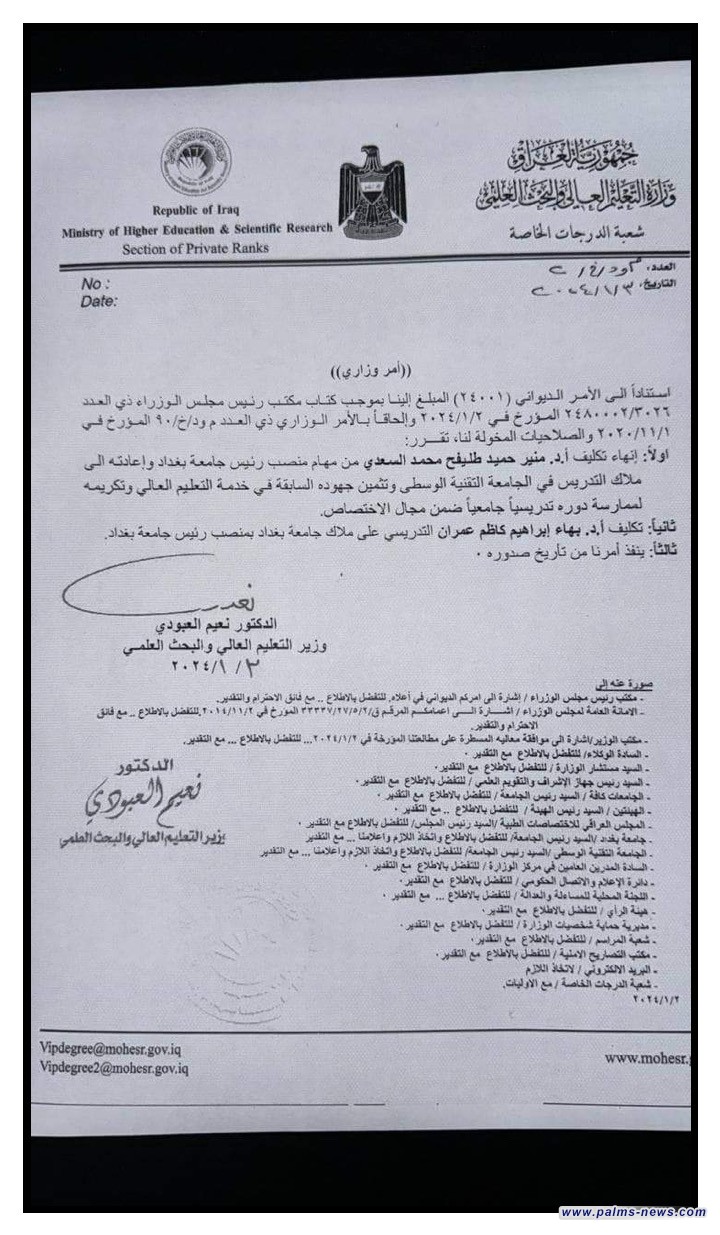 جمهورية العراق
وزارة التعليم العالي والبحث العلمي
شعبة الدرجات الخاصة
Republic of Iraq
Ministry of Higher Education & Scientific Research
Section of Private Ranks
العدد:
التاريخ: ٢٠٢٤/١/٣
No :
Date:
((أمر وزاري))
استناداً الى الأمر الديواني (٢٤٠٠١) المبلغ إلينا بموجب كتاب مكتب رئيس مجلس الوزراء ذي العدد
٢٤٨٠٠٠٢/٣٠٢٦ المؤرخ في ٢٠٢٤/١/٢ والحاقاً بالأمر الوزاري ذي العدد م ود/خ/٩٠ المؤرخ في
٢٠٢٠/١١/١ والصلاحيات المخولة لنا، تقرر:
اولاً: إنهاء تكليف أ.د. منير حميد طليفح محمد السعدي من مهام منصب رئيس جامعة بغداد وإعادته الى
ملاك التدريس في الجامعة التقنية الوسطى وتثمين جهوده السابقة في خدمة التعليم العالي وتكريمه
لممارسة دوره تدريسياً جامعياً ضمن مجال الاختصاص.
ثانياً: تكليف أ.د. بهاء إبراهيم كاظم عمران التدريسي على ملاك جامعة بغداد بمنصب رئيس جامعة بغداد.
ثالثاً: ينفذ أمرنا من تأريخ صدوره .
الدكتور نعيم العبودي
وزير التعليم العالي والبحث العلمي
٢٠٢٤/١/٢
صورة عنه إلى
- مكتب رئيس مجلس الوزراء / إشارة الى امركم الديواني في أعلاه. للتفضل بالاطلاع .. مع فائق الاحترام والتقدير.
- الامانة العامة لمجلس الوزراء / اشارة الى اعمامكم المرقم ق/٣٣٣٣٧/٢٧/٥/٢ المؤرخ في ٢٠١٤/١١/٢.للتفضل بالاطلاع .. مع فائق
الاحترام والتقدير.
- مكتب الوزير/اشارة الى موافقة معاليه المسطرة على مطالعتنا المؤرخة في ٢٠٢٤/١/٢... للتفضل بالاطلاع ... مع التقدير.
- السادة الوكلاء/ للتفضل بالاطلاع مع التقدير .
- السيد مستشار الوزارة / للتفضل بالاطلاع مع التقدير.
- السيد رئيس جهاز الإشراف والتقويم العلمي / للتفضل بالاطلاع مع التقدير.
- الجامعات كافة / السيد رئيس الجامعة / للتفضل بالاطلاع مع التقدير .
- الهيئتين / السيد رئيس الهيئة / للتفضل بالاطلاع .. مع التقدير .
- المجلس العراقي للاختصاصات الطبية /السيد رئيس المجلس/ للتفضل بالاطلاع مع التقدير .
- جامعة بغداد /السيد رئيس الجامعة/ للتفضل بالاطلاع واتخاذ اللازم وأعلامنا ... مع التقدير
- الجامعة التقنية الوسطى /السيد رئيس الجامعة/ للتفضل بالاطلاع واتخاذ اللازم وأعلامنا ... مع التقدير
- السادة المدرين العامين في مركز الوزارة / للتفضل بالاطلاع مع التقدير .
- دائرة الإعلام والاتصال الحكومي / للتفضل بالاطلاع مع التقدير .
- اللجنة المحلية للمساءلة والعدالة / للتفضل بالاطلاع ... مع التقدير .
- هيئة الرأي / للتفضل بالاطلاع مع التقدير .
- مديرية حماية شخصيات الوزارة / للتفضل بالاطلاع مع التقدير .
- شعبة المراسم / للتفضل بالاطلاع مع التقدير .
- مكتب التصاريح الامنية / للتفضل بالاطلاع مع التقدير .
- البريد الالكتروني / لاتخاذ اللازم
- شعبة الدرجات الخاصة / مع الاوليات.
٢٠٢٤/١/٢
الدكتور
نعيم العبودي
وزير التعليم العالي والبحث العلمي
Vipdegree@mohesr.gov.iq
Vipdegree2@mohesr.gov.iq
www.mohesr.g
www.palms-news.com